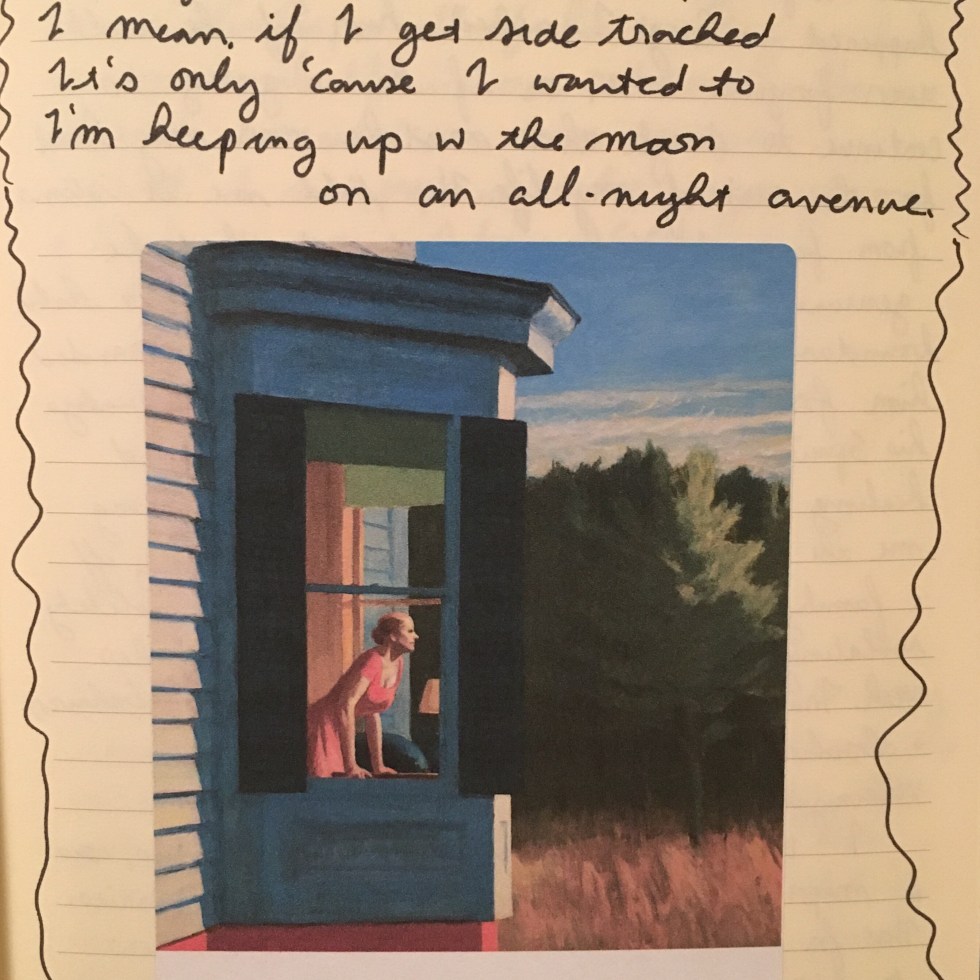 I mean, if I get side tracked
It's only 'cause I wanted to
I'm keeping up w the moon
on an all-night avenue.